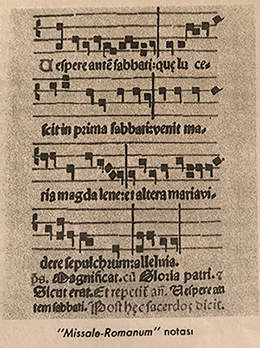 Uespere autē sabbati: que lu ce-
scit in prima sabbati: venit ma-
ria magdalene: et altera maria vi-
dere sepulchrum: alleluia.
p̄s. Magnificat. cū Gloria patri. ꝛ
Sicut erat. Et repetit̄ añ. Uespere au
tem sabbati. Post hec sacerdos dicit.
"Missale-Romanum" notası